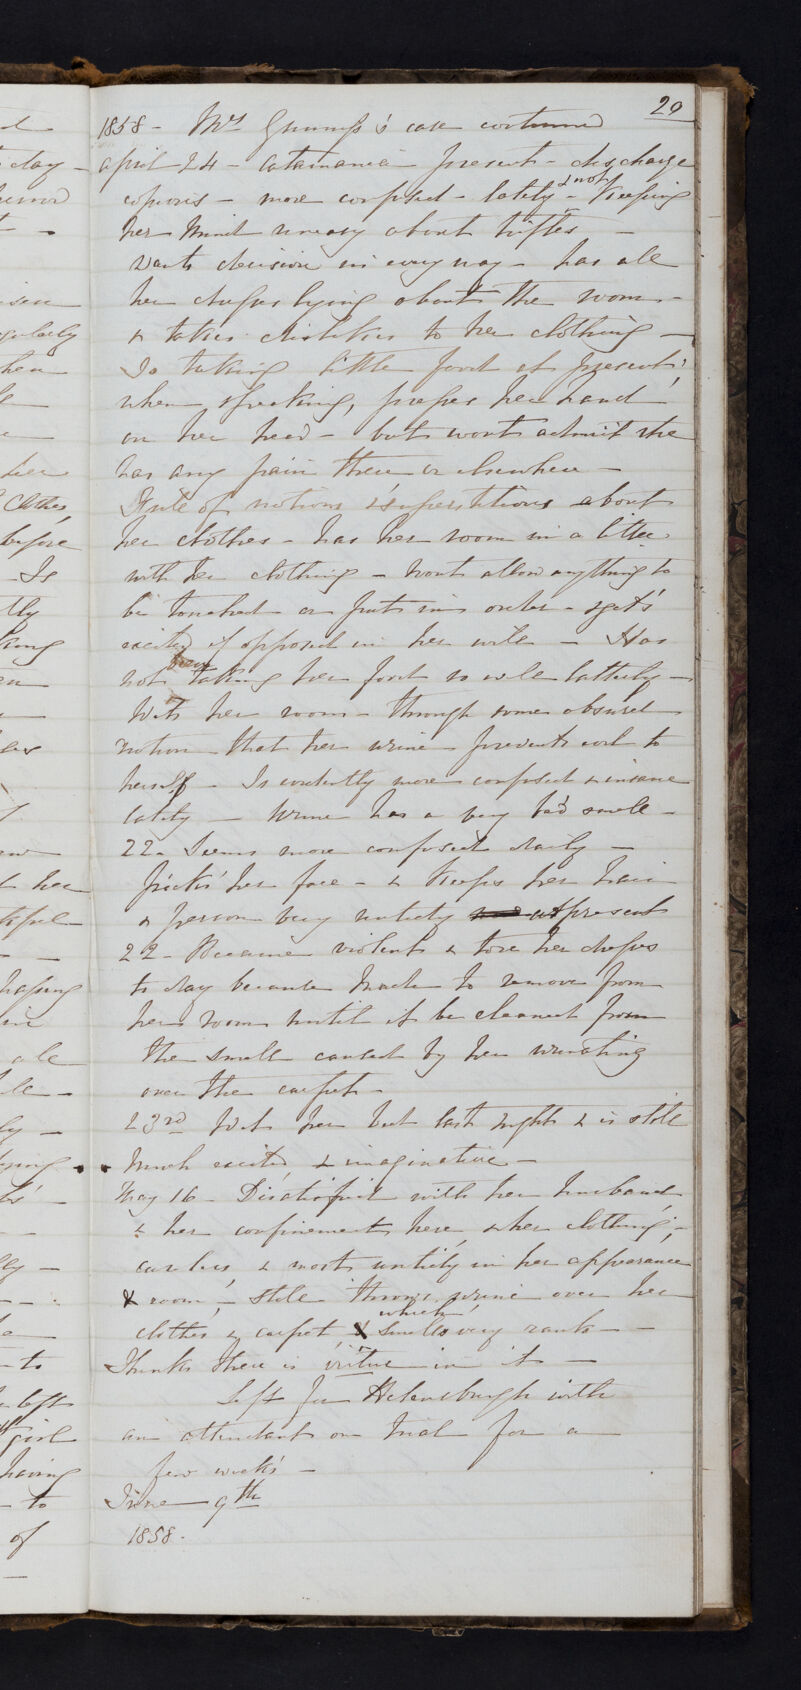 20
1858 - Mrs case continued
April 24 - Catamania present - discharge
copious - more confused - lately - & not keeping
her mind uneasy about trifles -
Wants decision in every way - has all
her dresses lying about the room -
& takes dislikes to her clothing -
Is taking little food at present;
when speaking, presses her hand
on her head - but wont admit she
has any pain there or elsewhere -
Full of notions & superstitions about
her clothes - has her room in a litter
with her clothing - wont allow anything to
be touched or put in order - gets
excited if opposed in her will - Has
not been taking her food so well latterly -
Wets her room - through some absurd
notion that her urine prevents evil to
herself - Is evidently more confused & insane
lately - Urine has a very bad smell -
22 - Seems more confused daily -
Picks her face - & keeps her hair
& person very untidy at present
22 - Became violent & tore her dresses
to day because made to remove from
her room until it be cleaned from
the smell caused by her urinating
over the carpet -
23rd Wet her bed last night & is still
much excited & imaginative -
May 16 - Disatisfied with her husband
& her confinement here, & her clothing; -
careless & most untidy in her appearance
& room - still throws urine over her
clothes & carpet which smells very rank -
Thinks there is virtue in it -
Left for Helensburgh with
an attendant on trial for a
few weeks -
June 9th
1858.